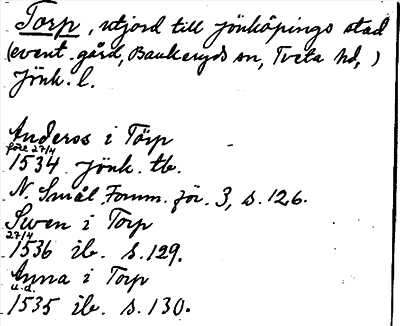 Torp, utjord till Jönköpings stad
(event. gård, Bankeryds sn, Tveta hd,)
Jönk. l.
Anders i Torp
före 27/4
1534 Jönk. tb.
N. Smål Fornm. för. 3, s. 126.
Swen i Torp
27/4
1536 ib. s. 129.
Anna i Torp
u.d.
1535 ib. s. 130.